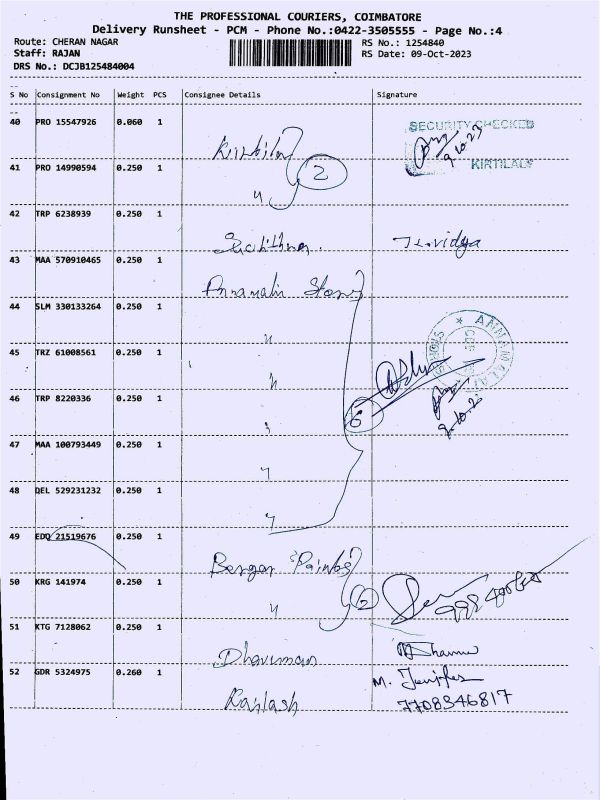 THE PROFESSIONAL COURIERS, COIMBATORE
Delivery Runsheet - PCM - Phone No.:0422-3505555 - Page No.:4
Route: CHERAN NAGAR
RS No.: 1254840
Staff: RAJAN
RS Date: 09-Oct-2023
DRS No.: DCJB125484004
S No Consignment No Weight PCS Consignee Details Signature
40 PRO 15547926 0.060 1
SECURITY CHECKED
9.10.23
KIRTILALS
41 PRO 14990594 0.250 1
2
"
42 TRP 6238939 0.250 1
43 MAA 570910465 0.250 1
Annamalai Stores
44 SLM 330133264 0.250 1
"
ANNAMALAI
45 TRZ 61008561 0.250 1
"
46 TRP 8220336 0.250 1
6
"
47 MAA 100793449 0.250 1
"
48 DEL 529231232 0.250 1
"
49 EDQ 21519676 0.250 1
Berger Paints
50 KRG 141974 0.250 1
" 2
51 KTG 7128062 0.250 1
52 GDR 5324975 0.260 1
M. Jenifer
Kailash 7708346817